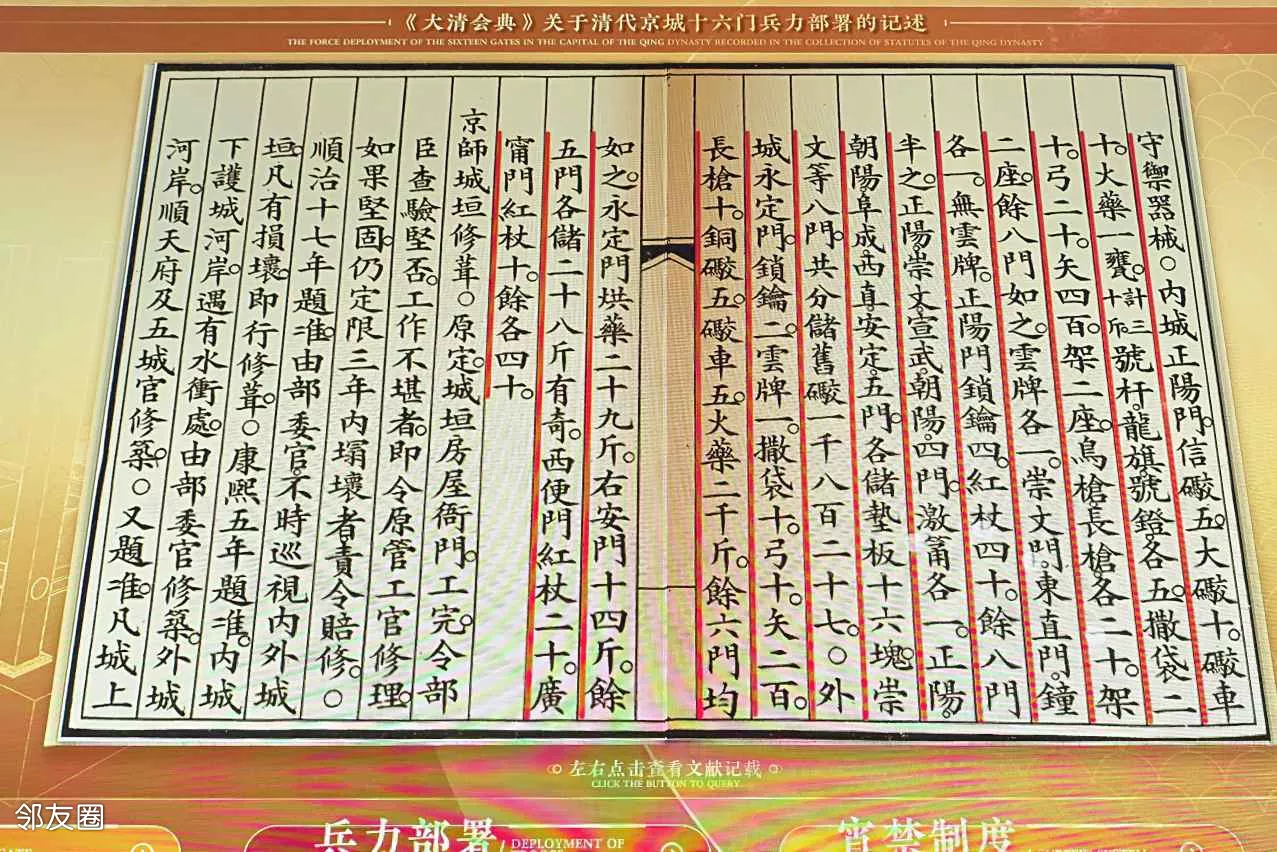 《大清会典》关于清代京城十六门兵力部署的记述
THE FORCE DEPLOYMENT OF THE SIXTEEN GATES IN THE CAPITAL OF THE QING DYNASTY RECORDED IN THE COLLECTION OF STATUTES OF THE QING DYNASTY
守禦器械○内城正陽門。信礮五。大礮十。礮車
十。火藥一甕。計三十斤。號杆。龍旗。號鐙。各五。撒袋二
十。弓二十。矢四百。架二座。鳥槍長槍。各二十。架
二座。餘八門如之。雲牌各一。崇文門。東直門。鐘
各一。無雲牌。正陽門鎖鑰四。紅杖四十。餘八門
半之。正陽。崇文。宣武。朝陽。四門。激筩各一。正陽。
朝陽。阜成。西直。安定。五門。各儲墊板十六塊。崇
文等八門。共分儲舊礮一千八百二十七。○外
城永定門。鎖鑰二。雲牌一。撒袋十。弓十。矢二百。
長槍十。銅礮五。礮車五。火藥二千斤。餘六門均
如之。永定門烘藥二十九斤。右安門十四斤。餘
五門各儲二十八斤有奇。西便門紅杖二十。廣
甯門紅杖十。餘各四十。
京師城垣修葺○原定。城垣房屋衙門。工完。令部
臣查驗堅否。工作不堪者。即令原管工官修理。
如果堅固。仍定限三年内塌壞者。責令賠修。○
順治十七年題准。由部委官不時巡視内外城
垣。凡有損壞。即行修葺。○康熙五年題准。内城
下護城河岸。遇有水衝處。由部委官修築。外城
河岸。順天府及五城官修築。○又題准。凡城上
左右点击查看文献记载
CLICK THE BUTTON TO QUERY
兵力部署
DEPLOYMENT OF
宵禁制度
邻友圈